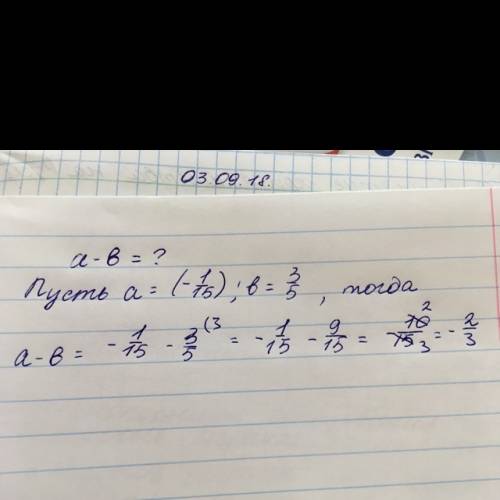 03.09.18.
a-в = ?
Пусть a = (-1/15); в = 3/5, тогда
a-в = -1/15 - 3/5 (3 = -1/15 - 9/15 = -10/15 2 3 = -2/3